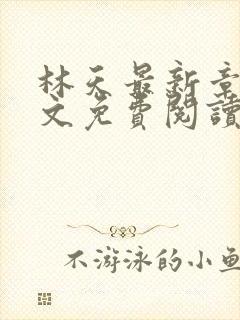 林天最新章
文免費閱讀
不游泳的小魚